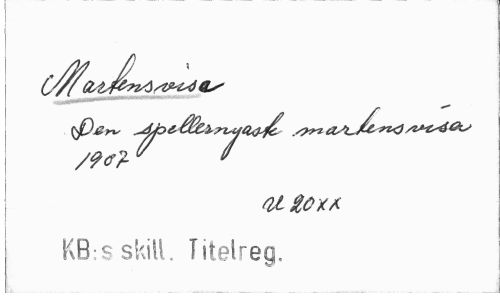 Martensvisa
Den spellernyaste martensvisa
1907
U 20xx
KB:s skill. Titelreg.